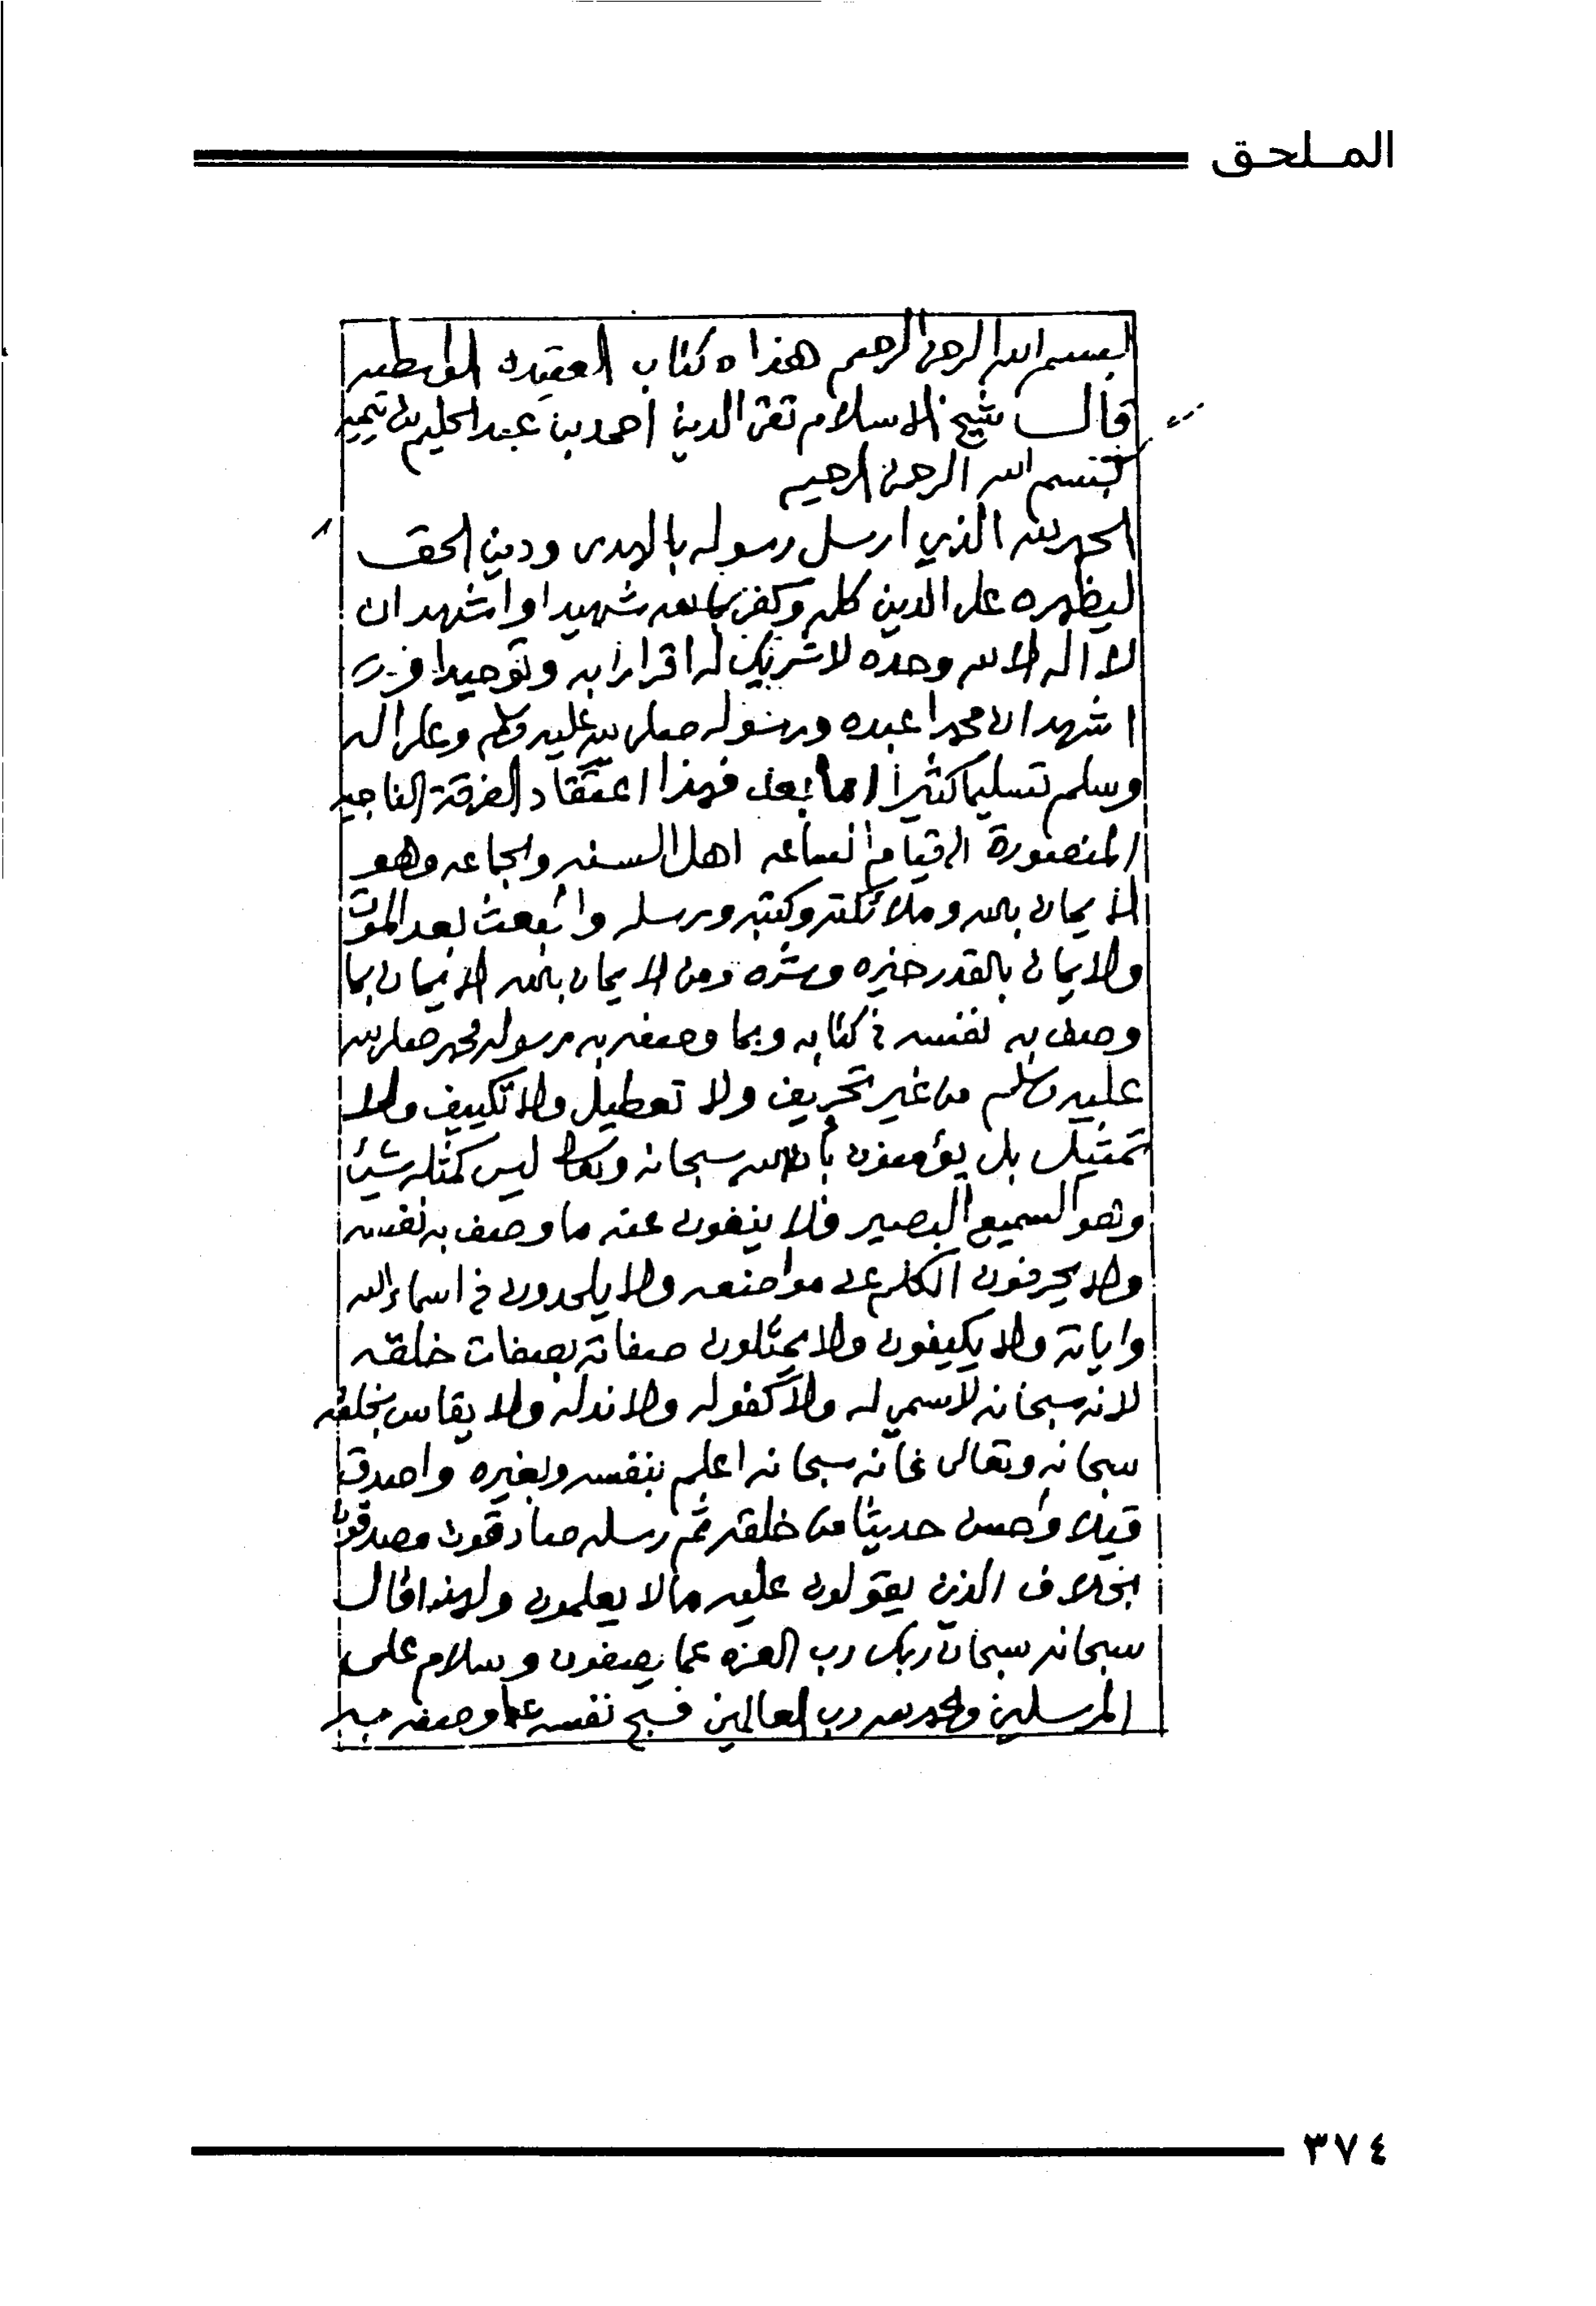 الملحق
بسم الله الرحمن الرحيم هذا ه كتاب العقيدة الواسطيه
قال شيخ الاسلام تقي الدين احمد بن عبد الحليم بن تيميه
بسم الله الرحمن الرحيم
الحمد لله الذي ارسل رسوله بالهدى ودين الحق
ليظهره على الدين كله وكفى بالله شهيدا واشهد ان
لا اله الا الله وحده لا شريك له اقرارا به وتوحيدا و
اشهد ان محمدا عبده ورسوله صلى الله عليه وسلم وعلى اله
وسلم تسليما كثيرا اما بعد فهذا اعتقاد الفرقة الناجيه
المنصورة الى قيام الساعه اهل السنه والجماعه وهو
الايمان بالله وملائكته وكتبه ورسله والبعث بعد الموت
والايمان بالقدر خيره وشره ومن الايمان بالله الايمان بما
وصف به نفسه في كتابه وبما وصفه به رسوله محمد صلى الله
عليه وسلم من غير تحريف ولا تعطيل ولا تكييف ولا
تمثيل بل يؤمنون بأن الله سبحانه وتعالى ليس كمثله شيئ
وهو السميع البصير فلا ينفون عنه ما وصف به نفسه
ولا يحرفون الكلم عن مواضعه ولا يلحدون في اسماء الله
واياته ولا يكيفون ولا يمثلون صفاته بصفات خلقه
لانه سبحانه لا سمي له ولا كفو له ولا ند له ولا يقاس بخلقه
سبحانه وتعالى فانه سبحانه اعلم بنفسه وبغيره واصدق
قيلا واحسن حديثا من خلقه ثم رسله صادقون مصدقون
بخلاف الذين يقولون عليه مالا يعلمون ولهذا قال
سبحانه سبحان ربك رب العزه عما يصفون وسلام على
المرسلين والحمد لله رب العالمين فسبح نفسه عما وصفه به
٣٧٤